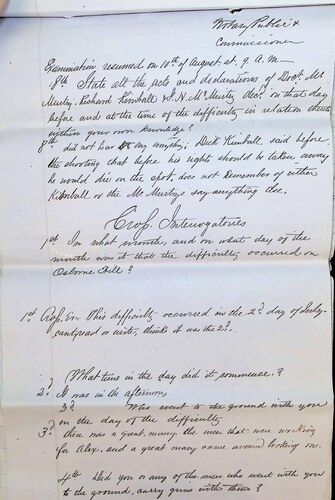 Notary Public &
Commissioner
Examination resumed on 10th of August at 9 A.M—
8th State all the acts and declarations of Deft Mc
Murty. Richard Kimball & N. McMurty Decd on that day
before and at the time of the difficulty in relation thereto
within your own knowledge?
8th did not hear say anything; Dick Kimball said before
the shooting that before his rights should be taken away
he would die on the spot, does not remember of either
Kimball or the McMurtys say anything else.
Crofs Interogatories
1st In what month, and on what day of the
month was it that the difficulty occurred on
Osborne Hill?
1st Crofs. This difficulty occurred in the 2d day of July
cant read or write, thinks it was the 2d.
What time in the day did it commence?
2d It was in the afternoon
3d Who went to the ground with you
on the day of the difficulty
3d there was a great many, the men that were working
for Alex, and a great many came around looking on.
4th Did you or any of the men who went with you
to the ground, carry guns with them?